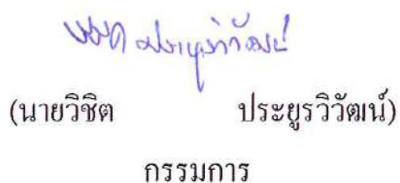 (นายวิชิต ประยูรวิวัฒน์)
กรรมการ